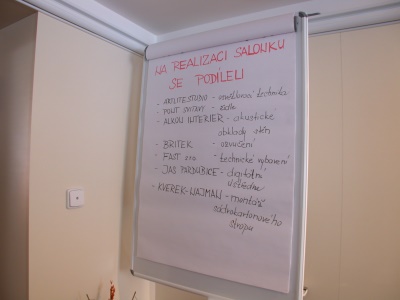 NA REALIZACI SALONKU
SE PODÍLELI
- osvětlovací technika
- židle
- ALKON INTERIER - akustické
obklady stěn
- BRITEK - ozvučení
- FAST - technické vybavení
- JAS PARDUBICE - digitální
- KVEREK-WAJMAN - montáž
sádrokartonového
stropu